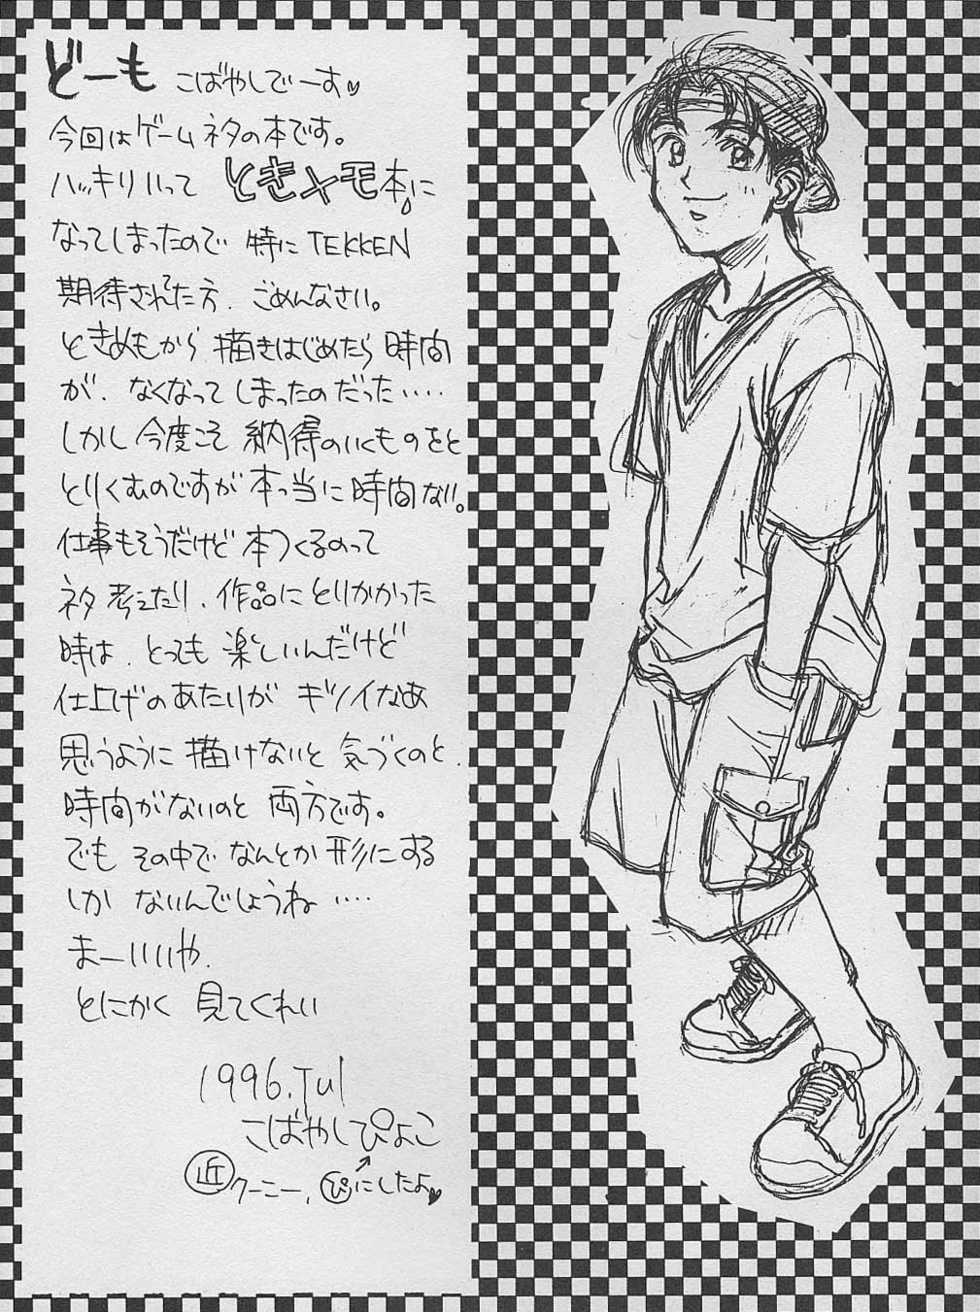 どーも こばやしでーす♥
今回はゲームネタの本です。
ハッキリいって ときメモ本に
なってしまったので 特にTEKKEN
期待されてた方、ごめんなさい。
ときめもから 描きはじめたら 時間
が、なくなってしまったのだった‥‥
しかし 今度こそ 納得のいくものをと
とりくむのですが 本っ当に 時間ない。
仕事もそうだけど 本つくるのって
ネタ考えたり、作品にとりかかった
時は、とっても 楽しいんだけど
仕上げのあたりが キツイなあ
思うように 描けないと 気づくのと、
時間がないのと 両方です。
でも その中で なんとか 形にする
しか ないんでしょうね‥‥
まーいいや、
とにかく 見てくれい
1996.Jul
こばやしぴよこ
近 クーニー、ぴにしたよ♥